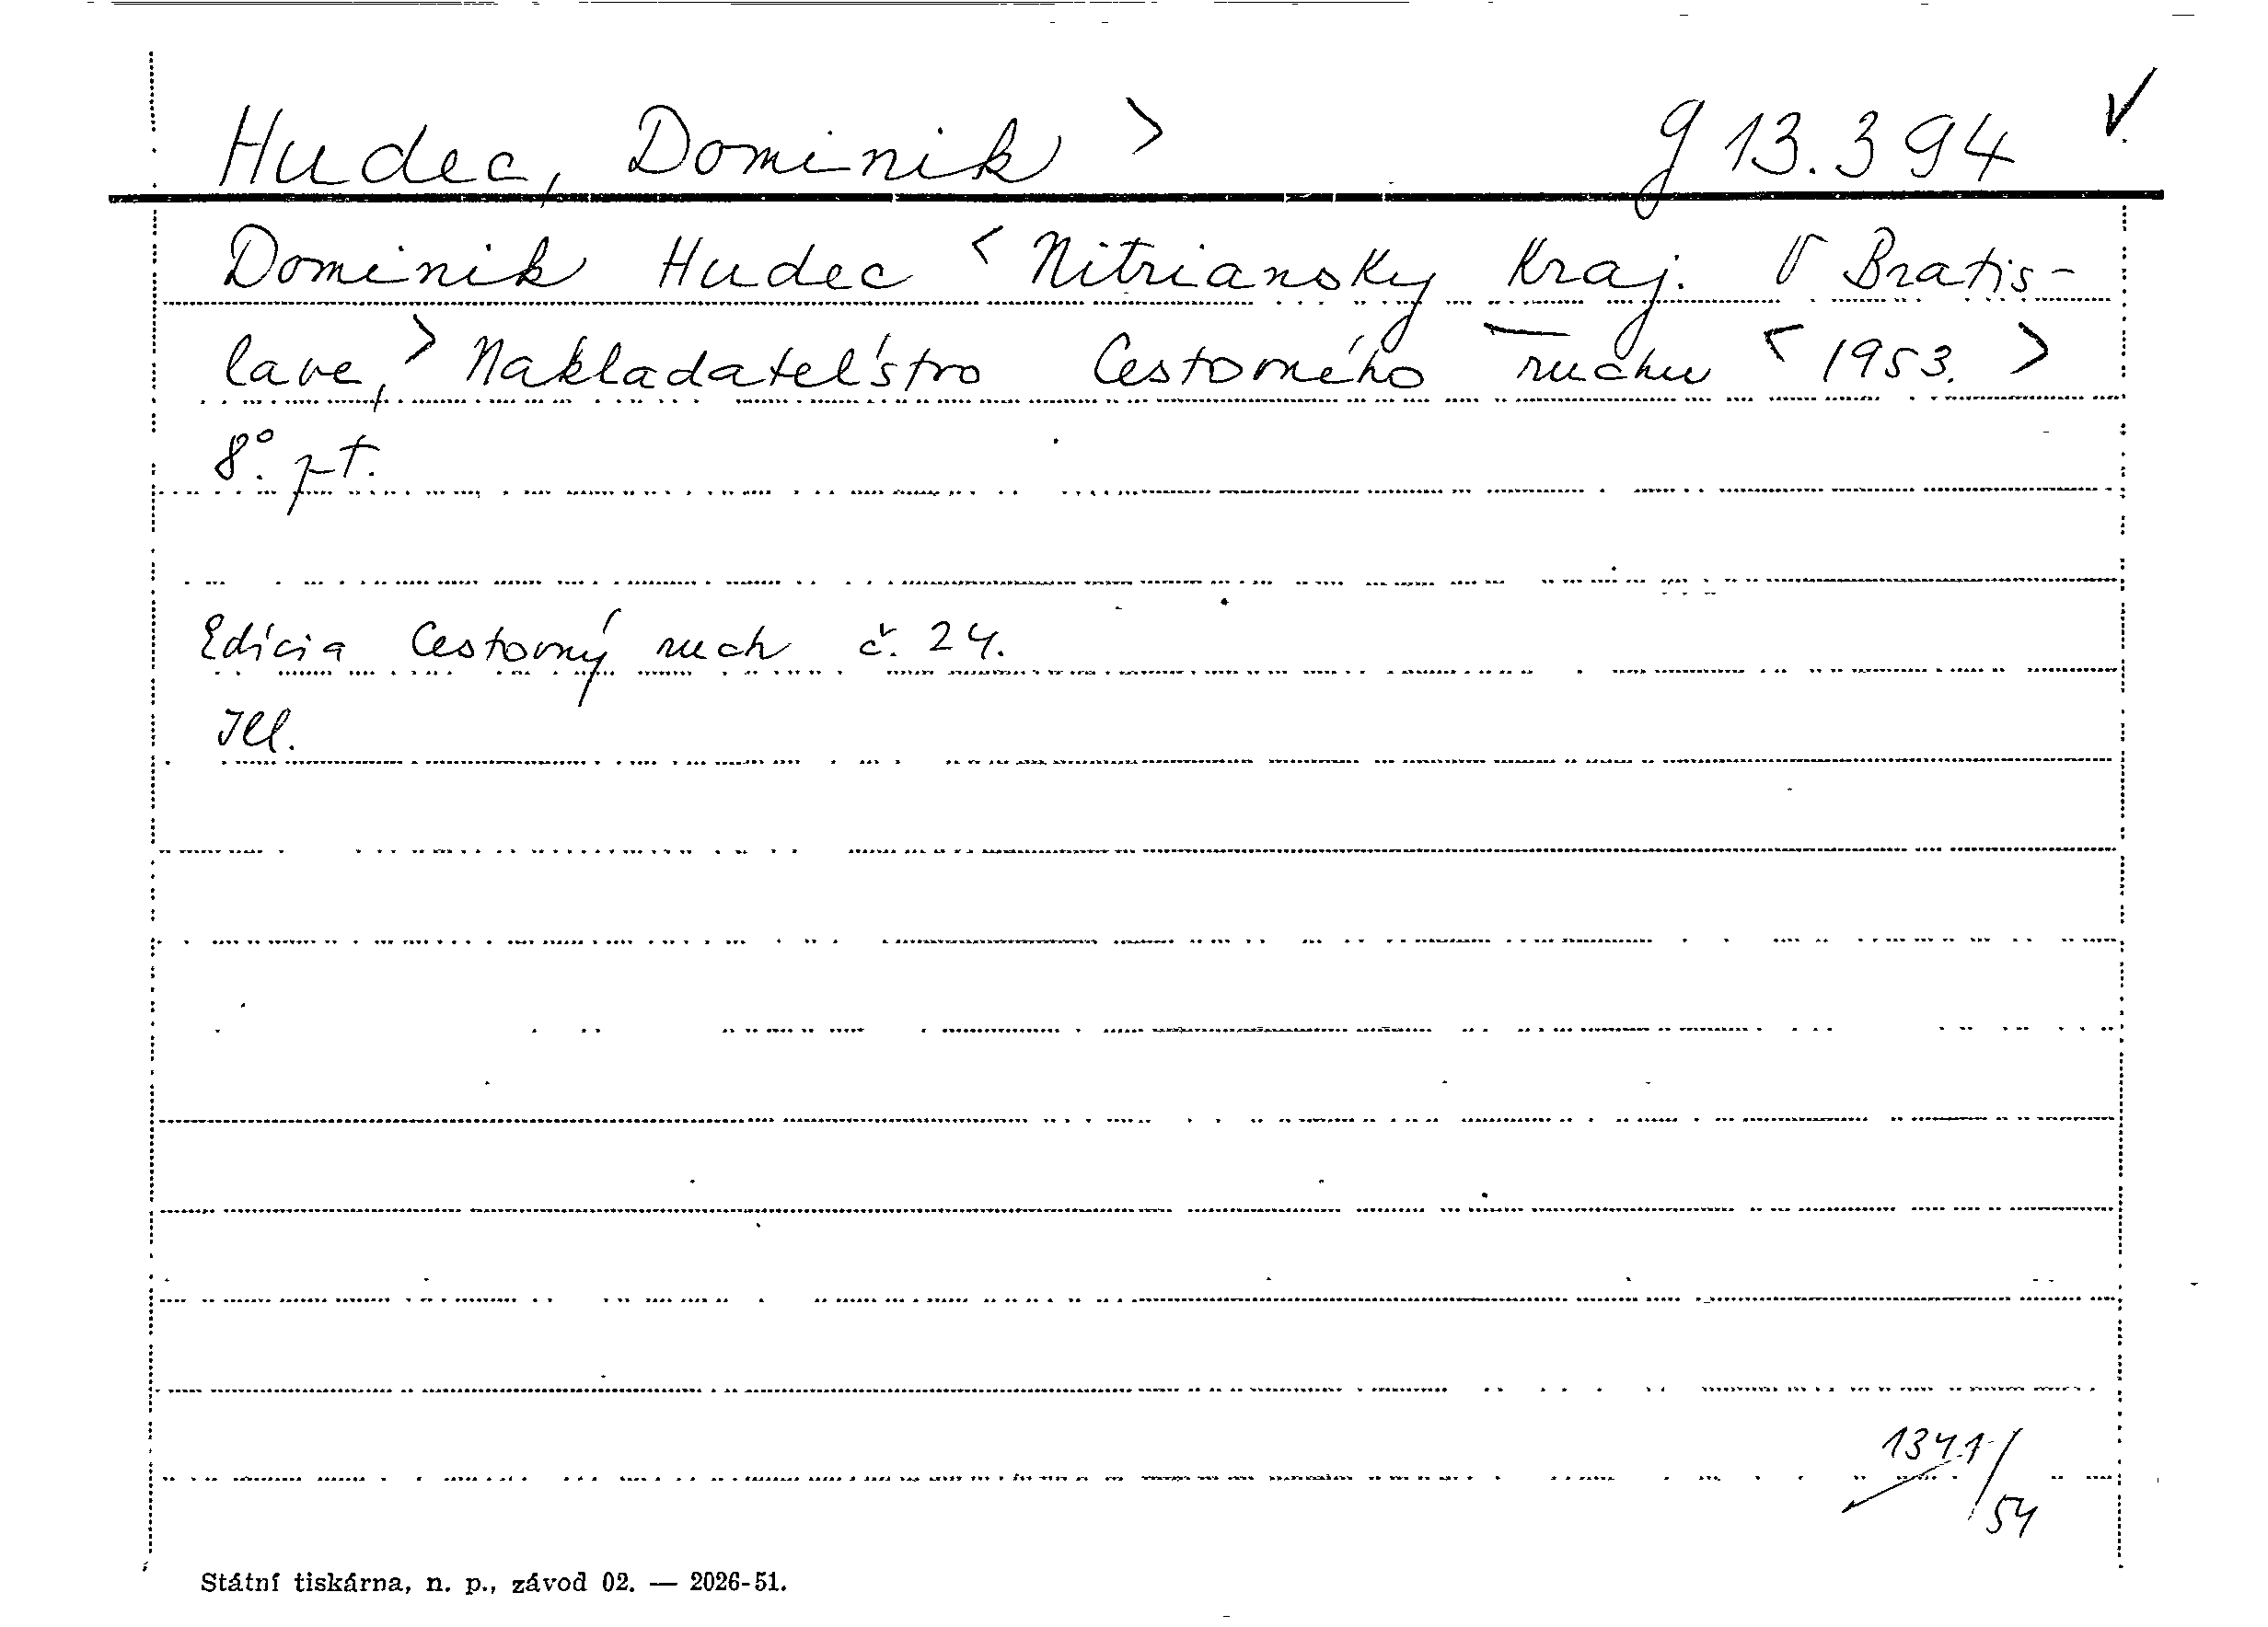 Hudec, Dominik > g 13.394 ✓
Dominik Hudec < Nitriansky Kraj. V Bratis-
lave, > Nakladateľstvo Cestovného ruchu < 1953. >
8°. pt.
Edícia Cestovný ruch č. 24.
Ill.
1341/54
Státní tiskárna, n. p., závod 02. — 2026-51.